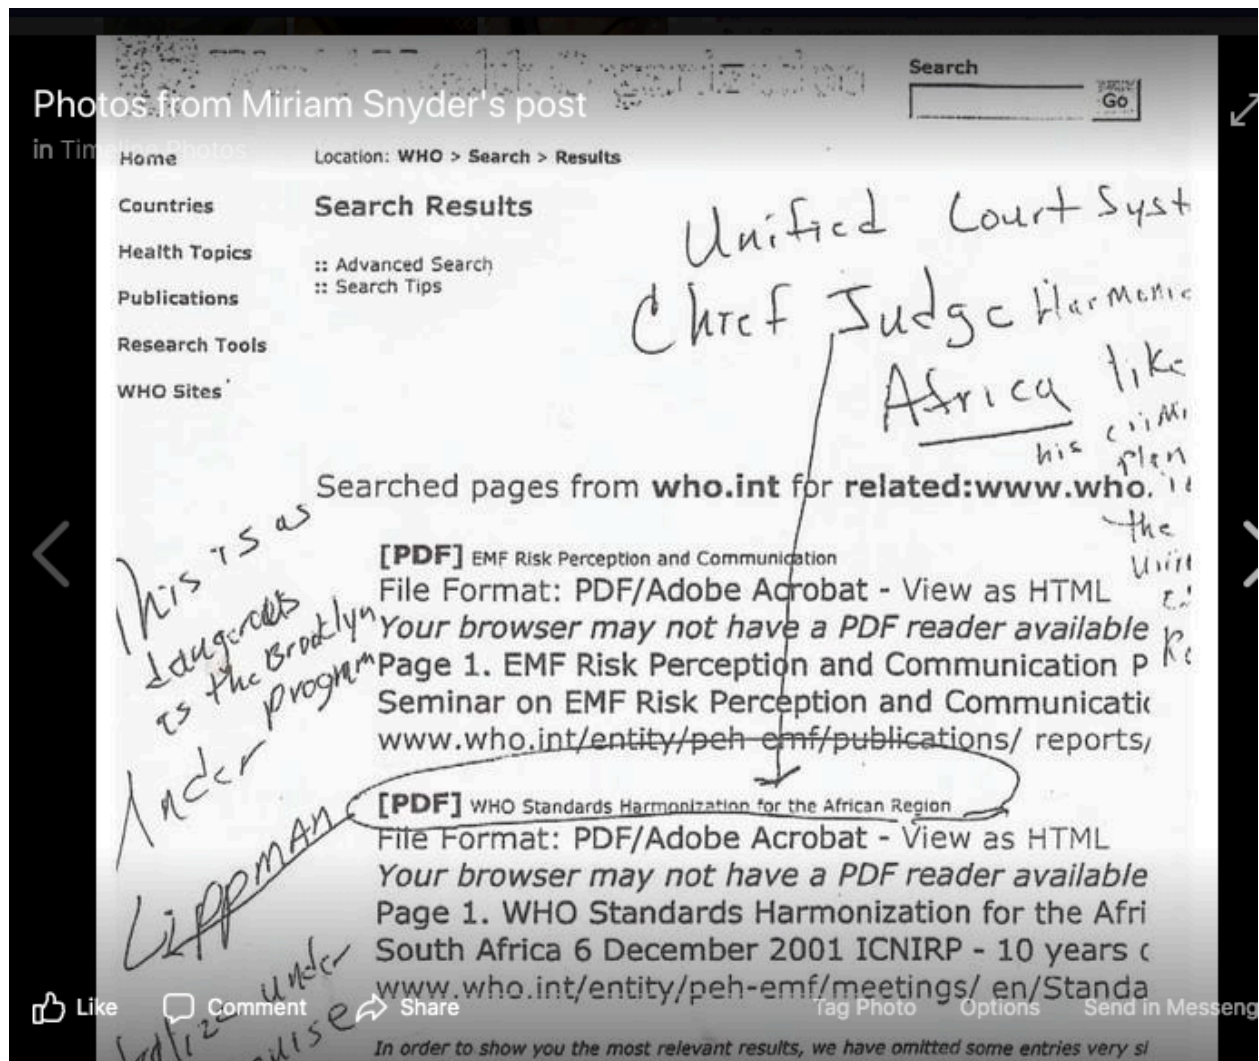 World Health Organization
Search
Go
Photos from Miriam Snyder's post
in Timeline Photos
Home
Location: WHO > Search > Results
Countries
Search Results
Health Topics
:: Advanced Search
:: Search Tips
Publications
Research Tools
WHO Sites
Unified Court Syst
Chief Judge Harmonic
Africa like
his crimi
plan
the
Searched pages from who.int for related:www.who.
This is as
dangerous
as the Brooklyn
program
under
Lippman
under
[PDF] EMF Risk Perception and Communication
File Format: PDF/Adobe Acrobat - View as HTML
Your browser may not have a PDF reader available
Page 1. EMF Risk Perception and Communication P
Seminar on EMF Risk Perception and Communicatic
www.who.int/entity/peh-emf/publications/ reports/
[PDF] WHO Standards Harmonization for the African Region
File Format: PDF/Adobe Acrobat - View as HTML
Your browser may not have a PDF reader available
Page 1. WHO Standards Harmonization for the Afri
South Africa 6 December 2001 ICNIRP - 10 years c
www.who.int/entity/peh-emf/meetings/ en/Standa
In order to show you the most relevant results, we have omitted some entries very si
Like Comment Share Tag Photo Options Send in Messeng